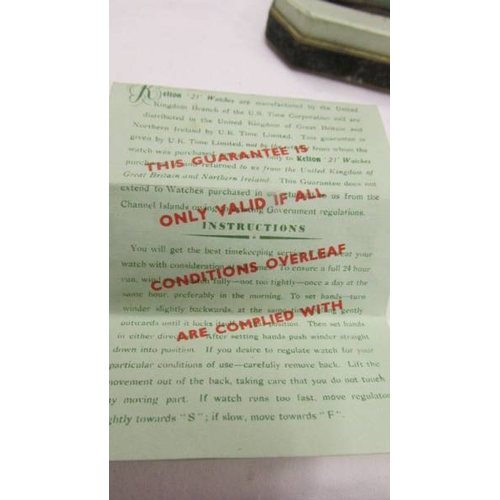 Kelton '21' Watches are manufactured by the United
Kingdom Branch of the U.S. Time Corporation and are
distributed in the United Kingdom of Great Britain and
Northern Ireland by U.K. Time Limited. This guarantee is
given by U.K. Time Limited, not by the from whom the
watch was purchased only to Kelton '21' Watches
THIS GUARANTEE IS
purch returned to us from the United Kingdom of
Great Britain and Northern Ireland. This Guarantee does not
extend to Watches purchased in us from the
Channel Islands Government regulations.
ONLY VALID IF ALL
INSTRUCTIONS
You will get the best timekeeping your
watch with consideration To ensure a full 24 hour
CONDITIONS OVERLEAF
run, wind fully—not too tightly—once a day at the
same hour, preferably in the morning. To set hands—turn
winder slightly backwards, at the same gently
outwards until it locks position. Then set hands
ARE COMPLIED WITH
in either After setting hands push winder straight
down into position. If you desire to regulate watch for your
particular conditions of use—carefully remove back. Lift the
movement out of the back, taking care that you do not touch
any moving part. If watch runs too fast, move regulator
slightly towards "S"; if slow, move towards "F".